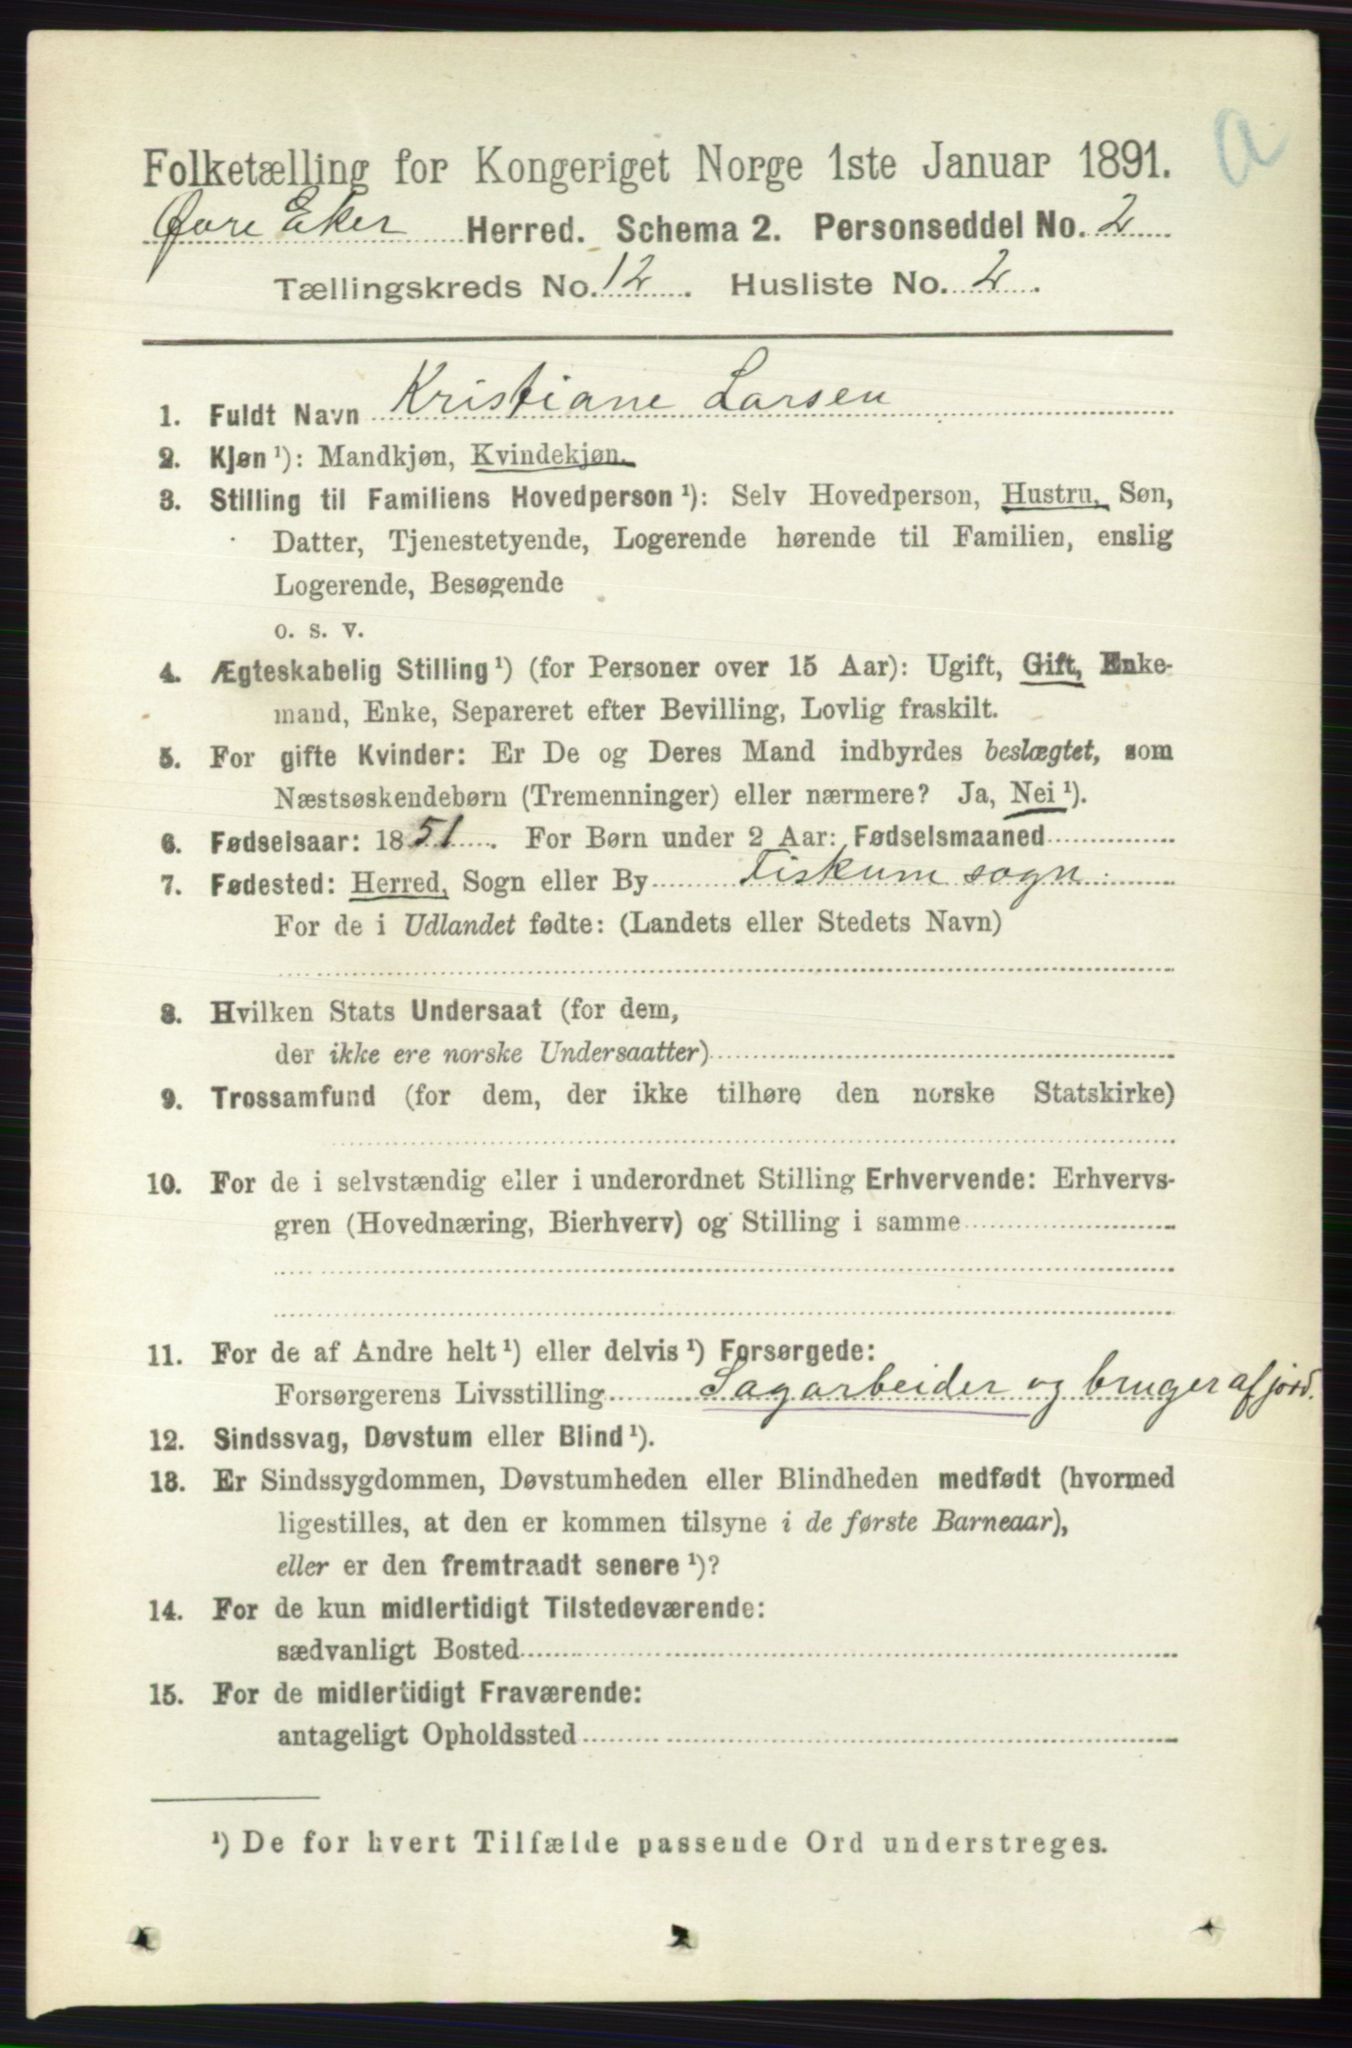 a
Folketælling for Kongeriget Norge 1ste Januar 1891.
Øvre Eker Herred. Schema 2. Personseddel No. 2
Tællingskreds No. 12. Husliste No. 2.
1. Fuldt Navn Kristiane Larsen
2. Kjøn ¹): Mandkjøn, Kvindekjøn.
3. Stilling til Familiens Hovedperson ¹): Selv Hovedperson, Hustru, Søn,
Datter, Tjenestetyende, Logerende hørende til Familien, enslig
Logerende, Besøgende
o. s. v.
4. Ægteskabelig Stilling ¹) (for Personer over 15 Aar): Ugift, Gift, Enke-
mand, Enke, Separeret efter Bevilling, Lovlig fraskilt.
5. For gifte Kvinder: Er De og Deres Mand indbyrdes beslægtet, som
Næstsøskendebørn (Tremenninger) eller nærmere? Ja, Nei ¹).
6. Fødselsaar: 1851. For Børn under 2 Aar: Fødselsmaaned
7. Fødested: Herred, Sogn eller By Fiskum sogn
For de i Udlandet fødte: (Landets eller Stedets Navn)
8. Hvilken Stats Undersaat (for dem,
der ikke ere norske Undersaatter)
9. Trossamfund (for dem, der ikke tilhøre den norske Statskirke)
10. For de i selvstændig eller i underordnet Stilling Erhvervende: Erhvervs-
gren (Hovednæring, Bierhverv) og Stilling i samme
11. For de af Andre helt ¹) eller delvis ¹) Forsørgede:
Forsørgerens Livsstilling Sagarbeider og bruger af jord.
12. Sindssvag, Døvstum eller Blind ¹).
13. Er Sindssygdommen, Døvstumheden eller Blindheden medfødt (hvormed
ligestilles, at den er kommen tilsyne i de første Barneaar),
eller er den fremtraadt senere ¹)?
14. For de kun midlertidigt Tilstedeværende:
sædvanligt Bosted
15. For de midlertidigt Fraværende:
antageligt Opholdssted
¹) De for hvert Tilfælde passende Ord understreges.